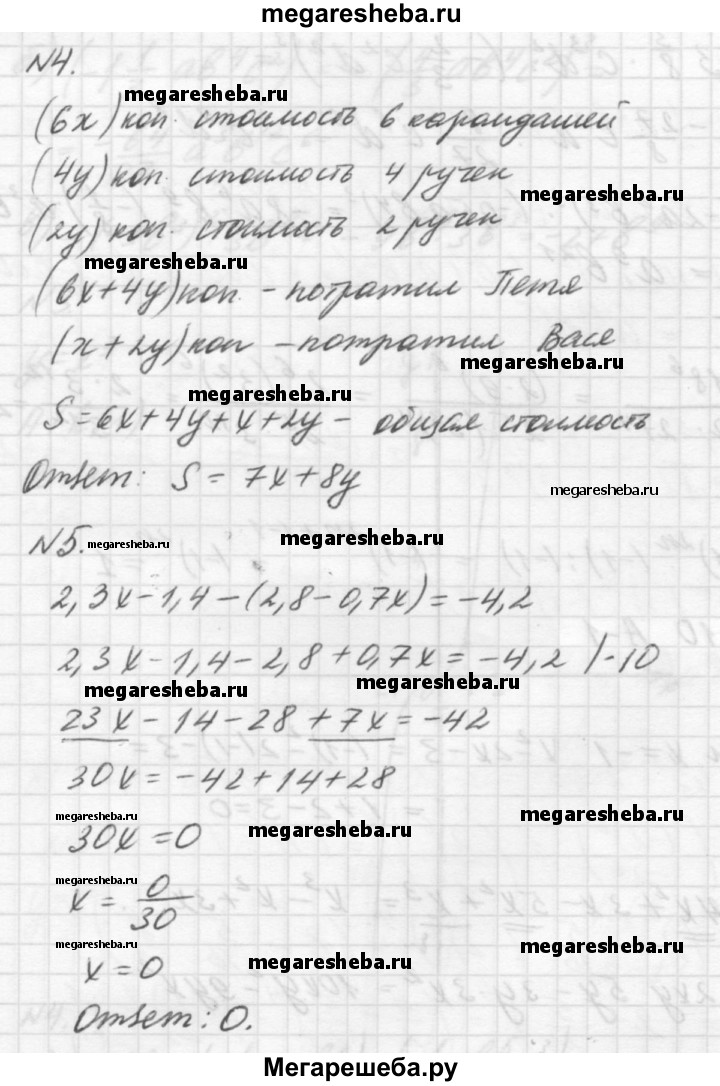 megaresheba.ru
№4.
megaresheba.ru
(6x) коп. стоимость 6 карандашей
(4y) коп. стоимость 4 ручек
megaresheba.ru
(2y) коп. стоимость 2 ручек
megaresheba.ru
(6x+4y) коп. – потратил Петя
(x+2y) коп – потратил Вася
megaresheba.ru
megaresheba.ru
S=6x+4y+x+2y – общая стоимость
Ответ: S = 7x+8y
megaresheba.ru
№5.
megaresheba.ru
megaresheba.ru
2,3x-1,4-(2,8-0,7x)=-4,2
2,3x-1,4-2,8+0,7x=-4,2 /·10
megaresheba.ru
megaresheba.ru
23x-14-28+7x=-42
30x=-42+14+28
megaresheba.ru
megaresheba.ru
megaresheba.ru
30x=0
megaresheba.ru
x = 0/30
megaresheba.ru
x=0
megaresheba.ru
megaresheba.ru
Ответ: 0.
Мегарешеба.ру